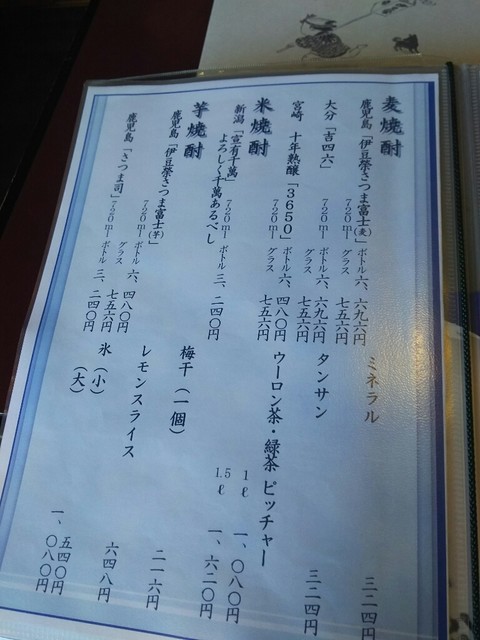 麦焼酎
鹿児島「伊豆榮さつま富士(麦)」
720ml ボトル 六、六九六円
グラス 七五六円
大分「吉四六」
720ml ボトル 六、六九六円
グラス 七五六円
宮崎 十年熟醸「3650」
720ml ボトル 六、四八〇円
グラス 七五六円
米焼酎
新潟「宣有千萬」
よろしく千萬あるべし
720ml ボトル 三、二四〇円
芋焼酎
鹿児島「伊豆榮さつま富士(芋)」
720ml ボトル 六、四八〇円
グラス 七五六円
鹿児島「さつま司」
720ml ボトル 三、二四〇円
グラス
ミネラル 三二四円
タンサン 三二四円
ウーロン茶・緑茶 ピッチャー
1ℓ 一、〇八〇円
1.5ℓ 一、六二〇円
梅干(一個) 二一六円
レモンスライス 六四八円
氷(小) 五四〇円
(大) 一、〇八〇円